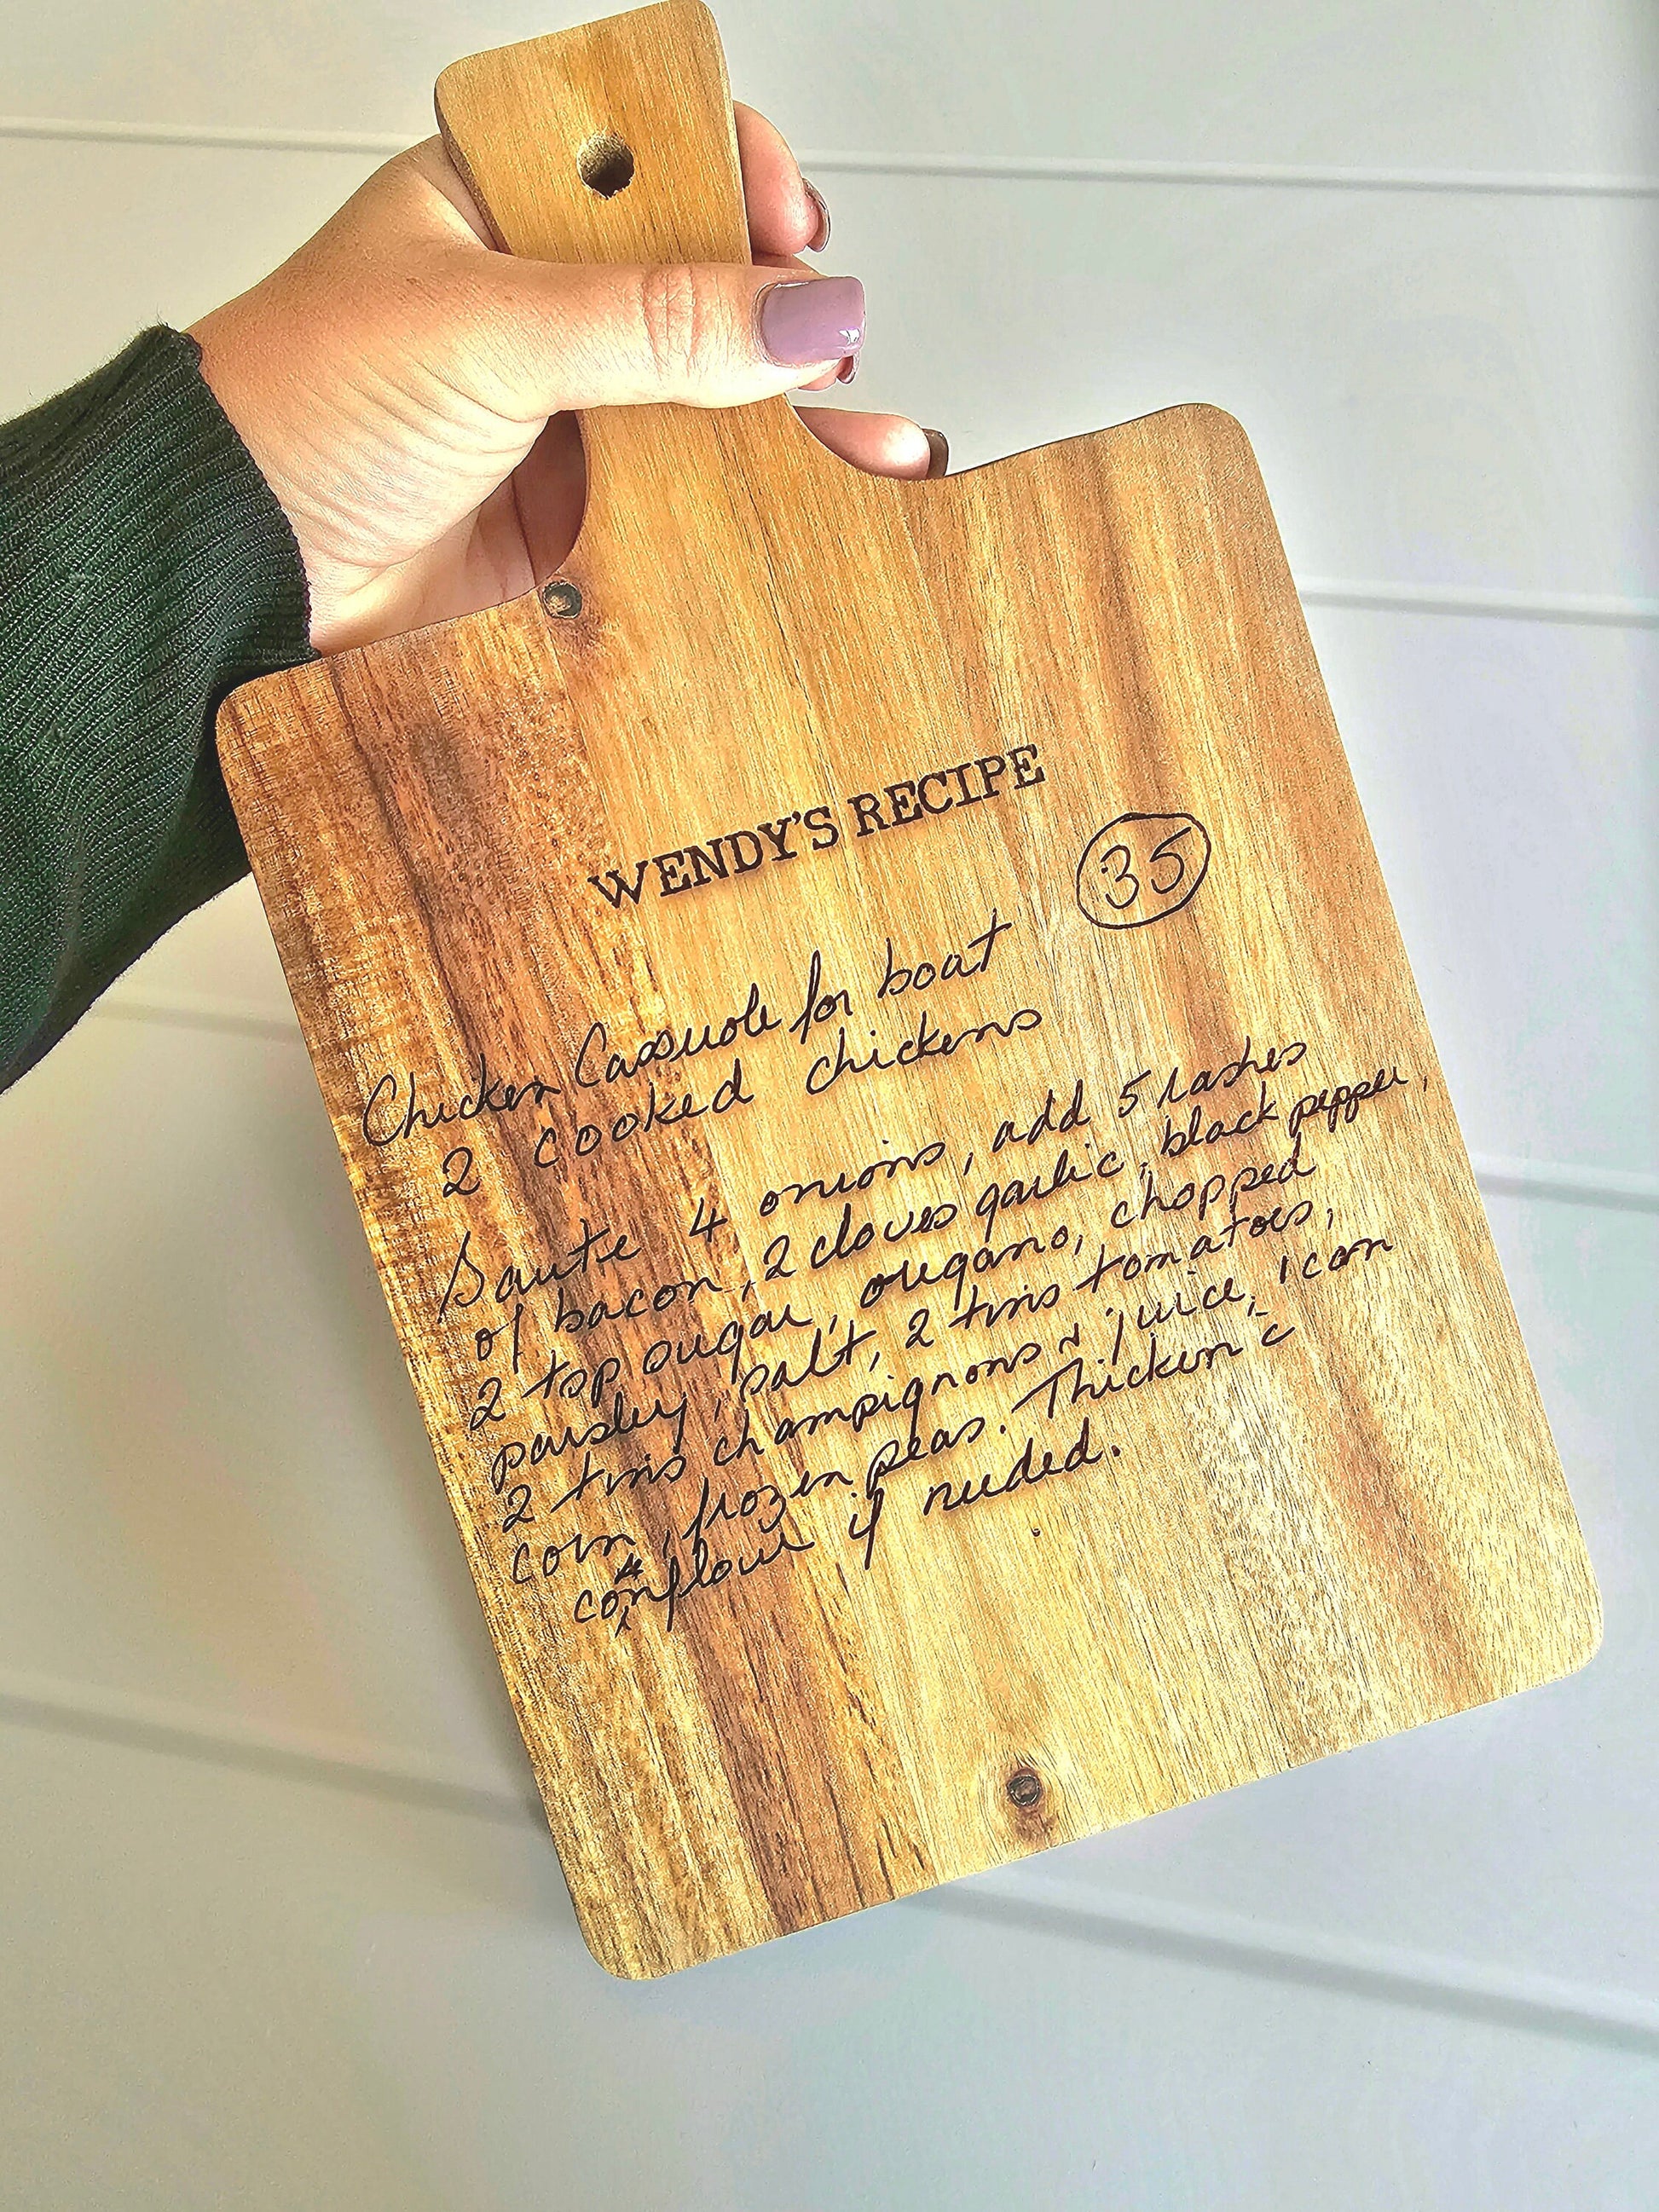 WENDY'S RECIPE
35
Chicken Cassuole for boat
2 cooked chickens
Saute 4 onions, add 5 rashes
of bacon, 2 cloves garlic, black pepper,
2 tsp sugar, oregano, chopped
parsley, salt, 2 tins tomatoes,
2 tins champignons & juice, 1 can
corn, frozen peas. Thicken c̄
cornflour if needed.